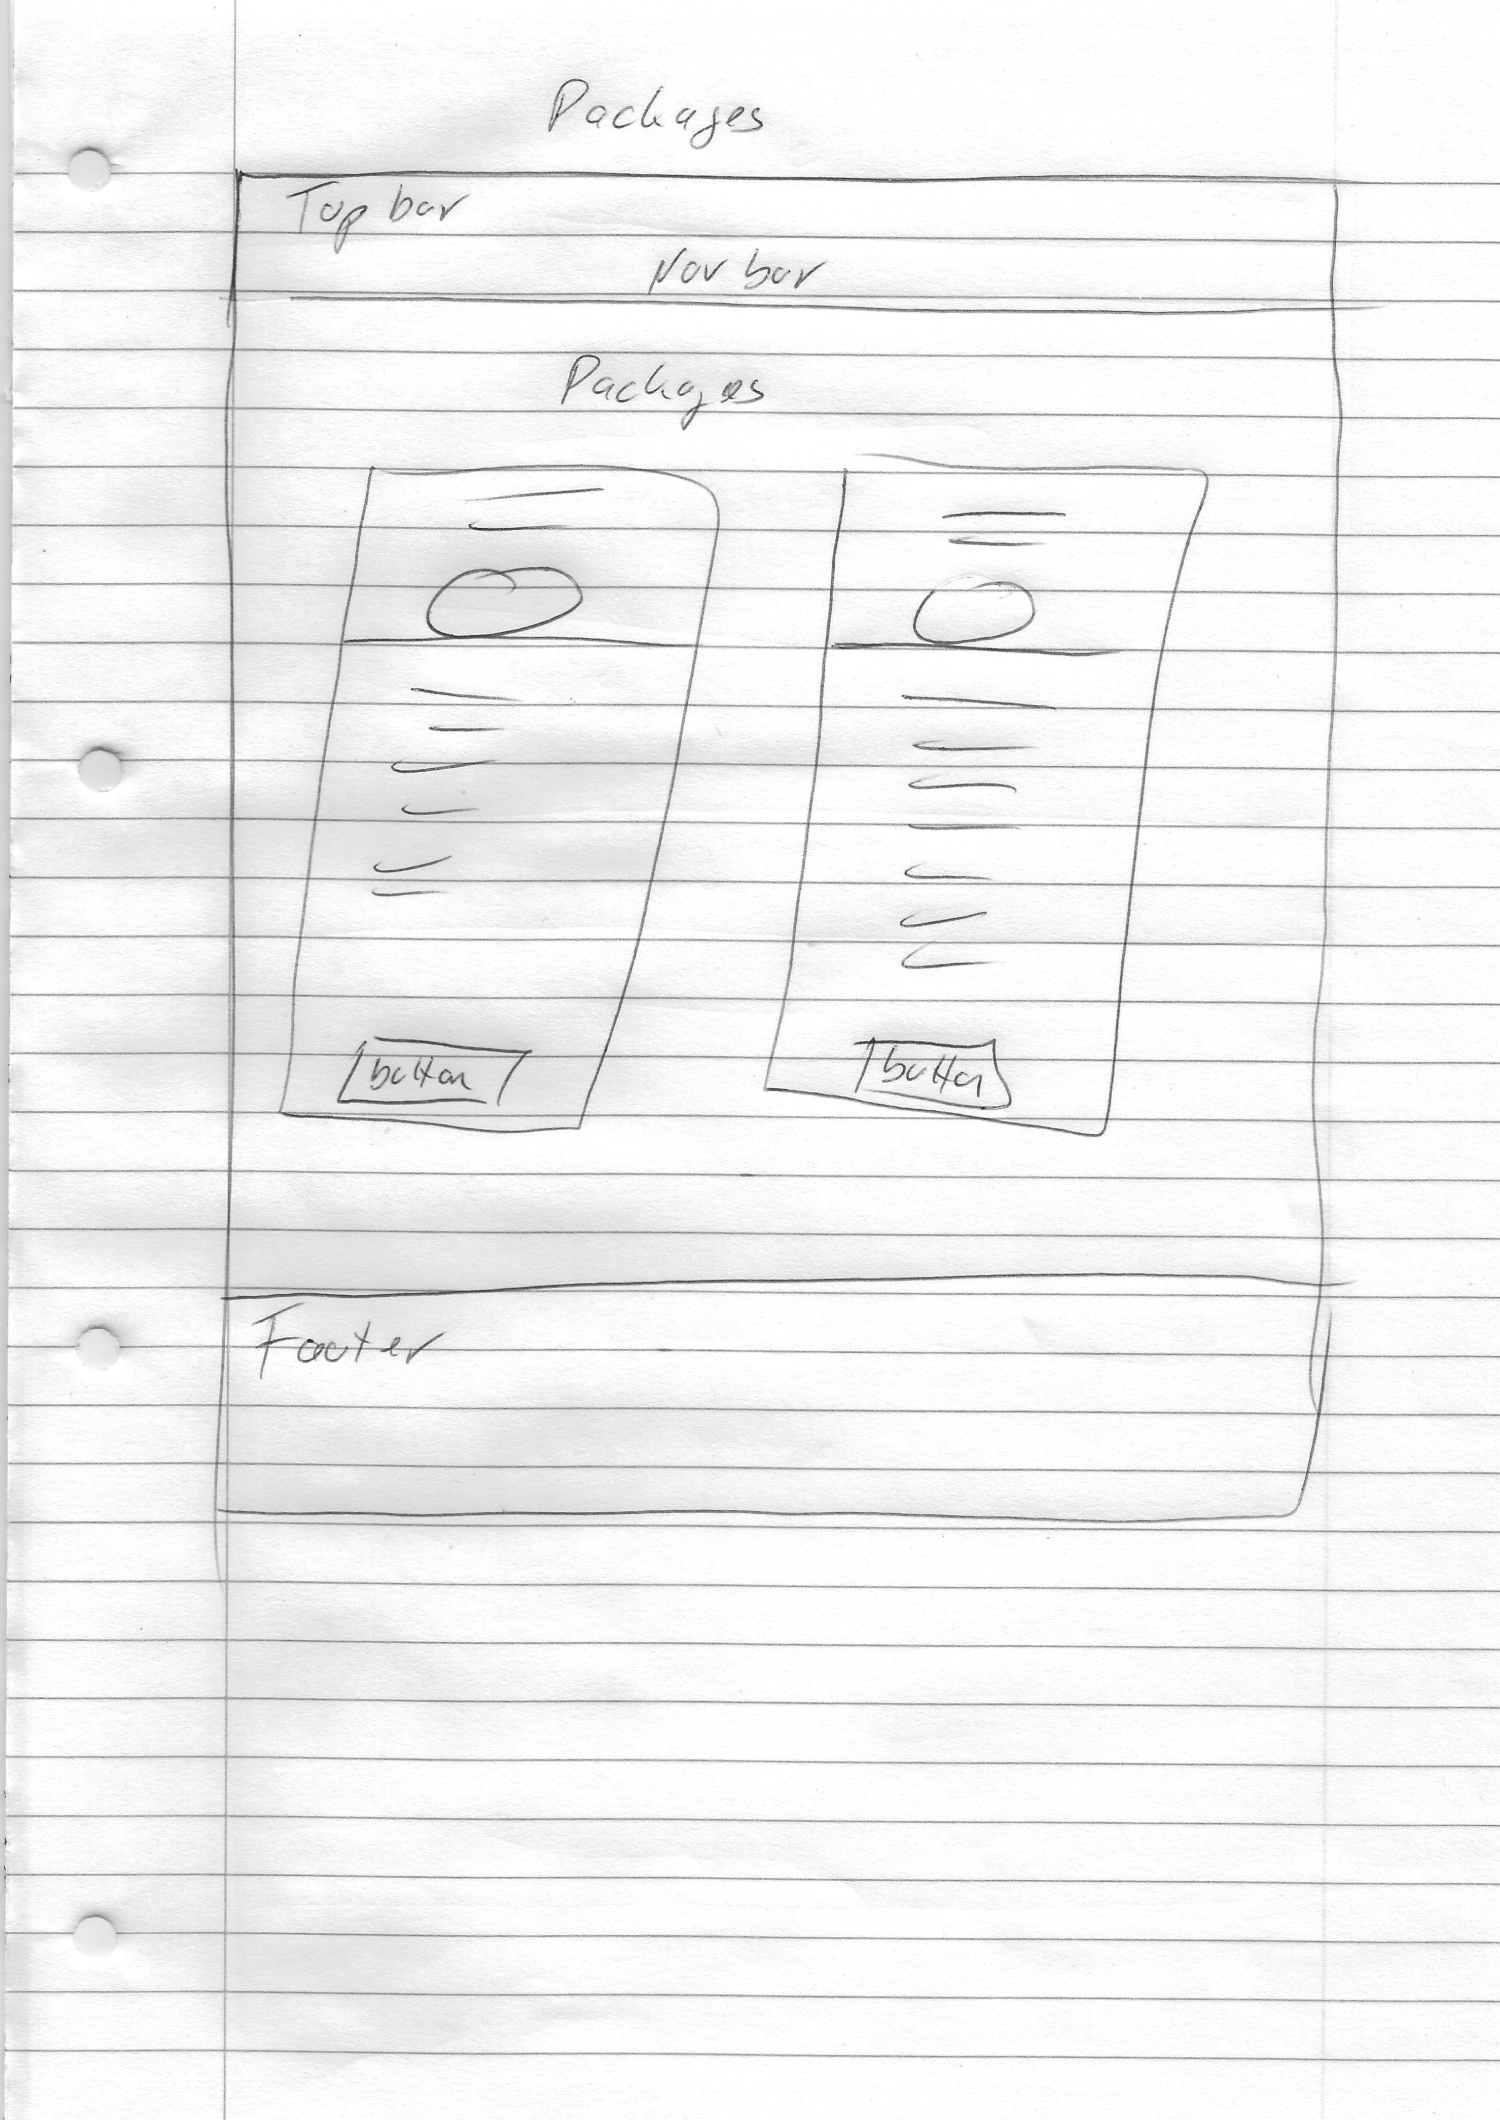 Packages
Top bar
Nav bar
Packages
button
button
Footer